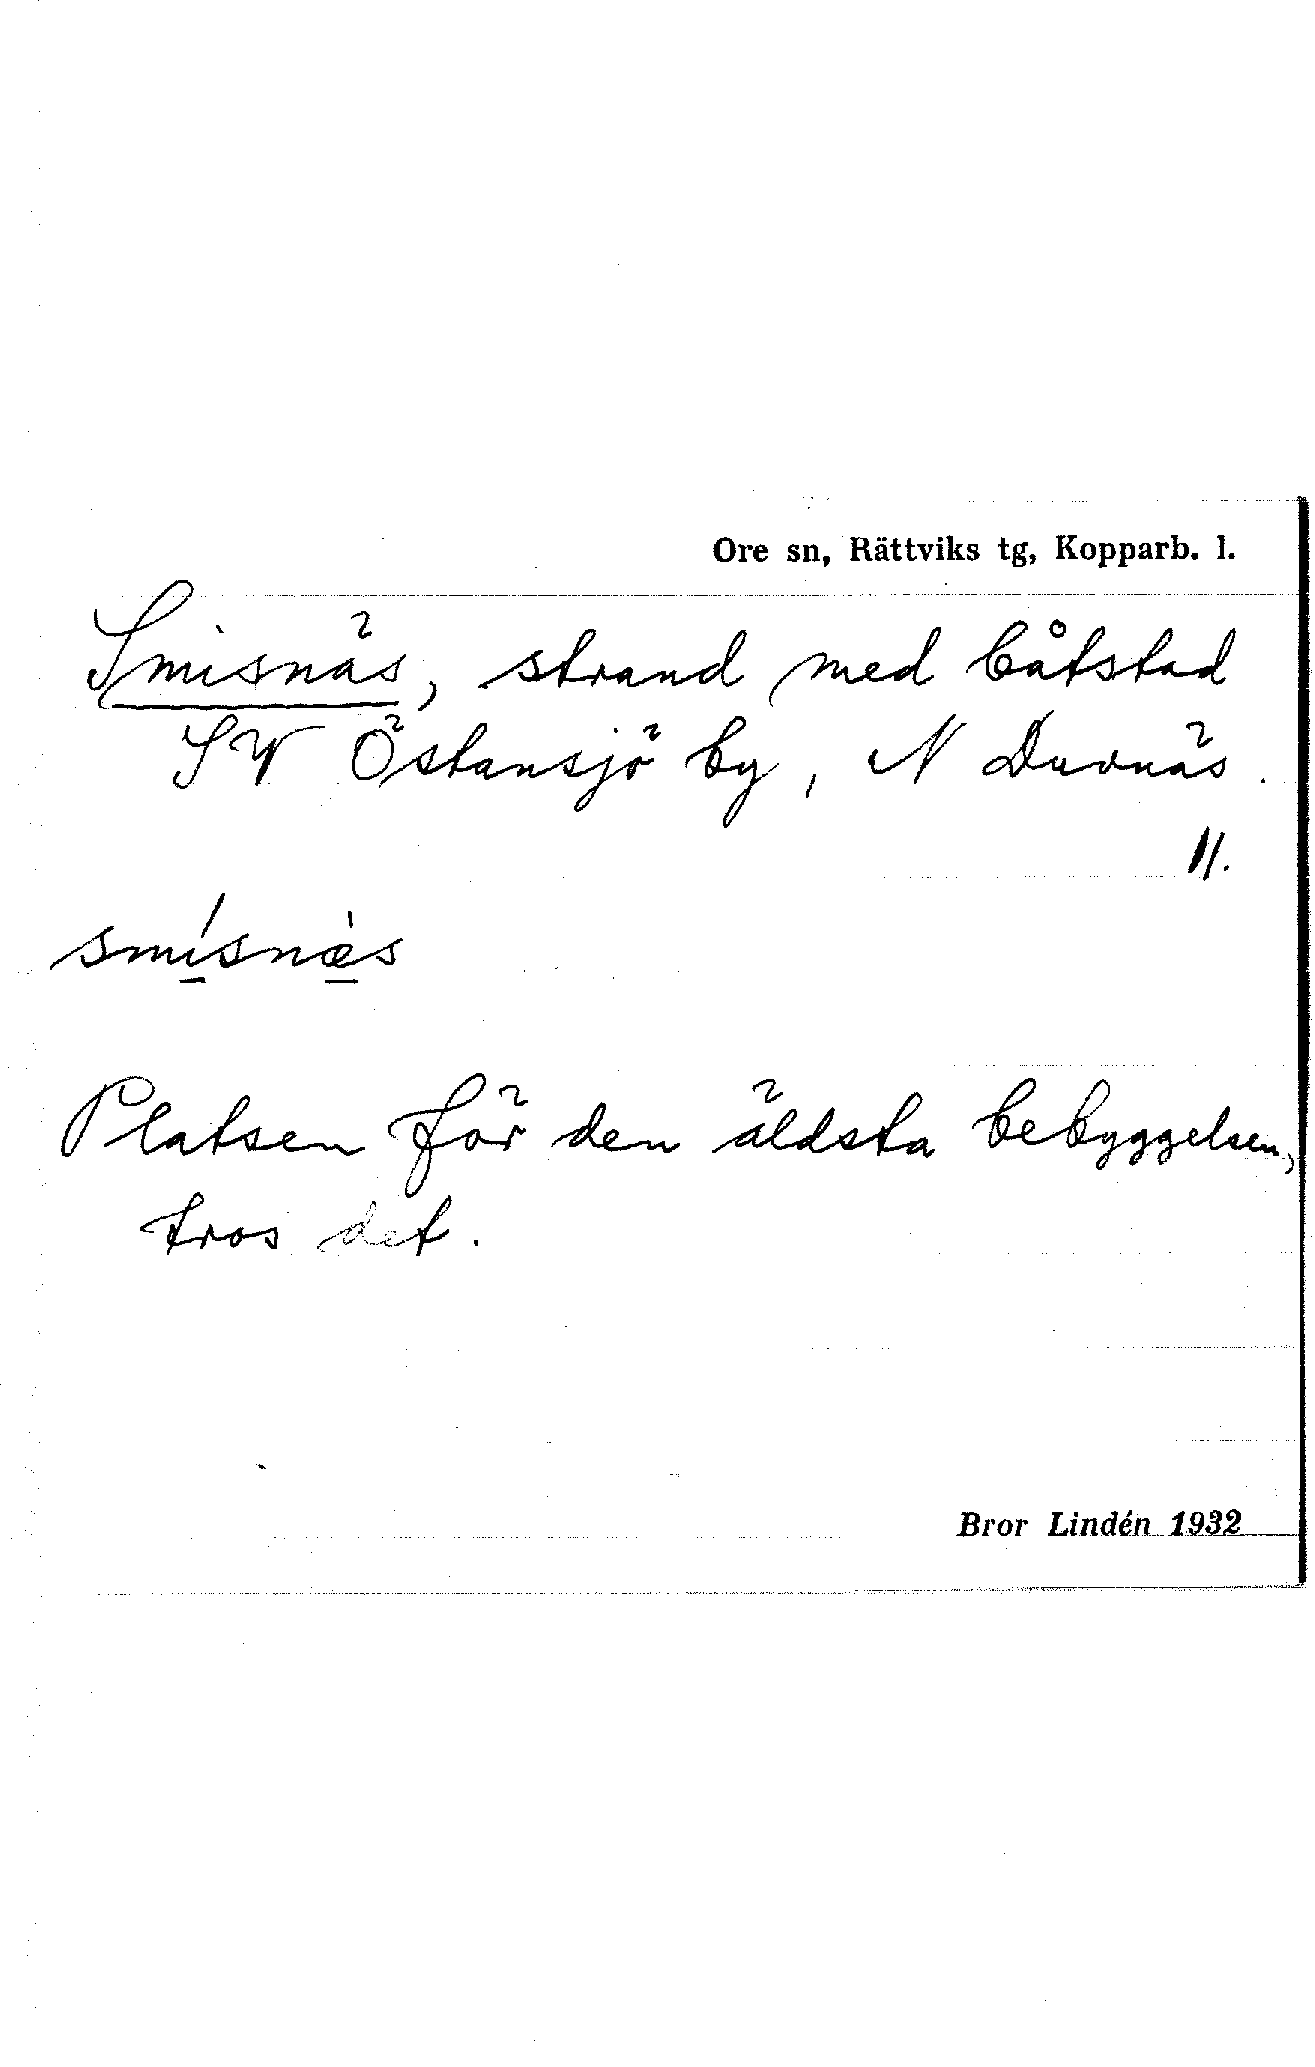 Ore sn, Rättviks tg, Kopparb. l.
Smisnäs, strand med båtstad
SV Östansjö by, N Duvnäs.
11.
smísnæ̀s
Platsen för den äldsta bebyggelsen,
tros det.
Bror Lindén 1932